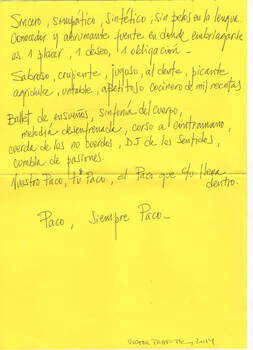 Sincero, simpático, sintético, sin pelos en la lengua.
Conocedor y abrumante fuente en donde embriagarse
es 1 placer, 1 deseo, 1 obligación.
Sabroso, crujiente, jugoso, al dente, picante
agridulce, untable, apetitoso cocinero de mil recetas
Ballet de ensueños, sinfonía del cuerpo,
melodía desenfrenada, corso a contramano,
cuerda de los no cuerdos, DJ de los sentidos,
cumbia de pasiones.
Nuestro Paco, tu Paco, el Paco que c/u lleva
dentro.
Paco, Siempre Paco
2014